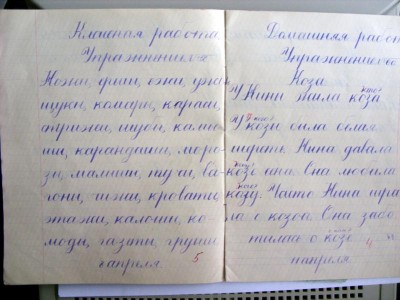 Классная работа
Упражнение
Ножи, ерши, ежи, ужи
щуки, комары, караси,
стрижи, шубы, камы-
ши, карандаши, моро-
зы, малыши, тучи, ва-
гоны, шки, кровати,
этажи, калоши, ко-
моды, газеты, груши
1 апреля. 5
Домашняя работ
Упражнение
Коза.
кто?
У Нины жила коза
У козы была белая
шерсть. Нина давала
козе сена. Она любила
козу. Часто Нина игра
ла с козой. Она забо
тилась о козе
4
апреля